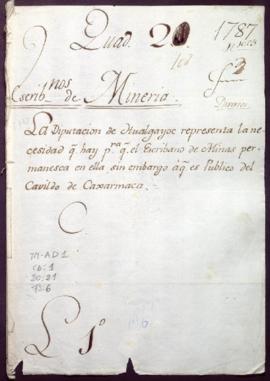 Quad. 20
1787
Escrib.nos de Mineria.
La Diputacion de Hualgayoc representa la ne
cesidad q. hay pª. q. el Escribano de Minas per
manesca en ella sin embargo á q. es publico del
Cavildo de Caxarmaca.
TM-AD1
20:21
L 1º